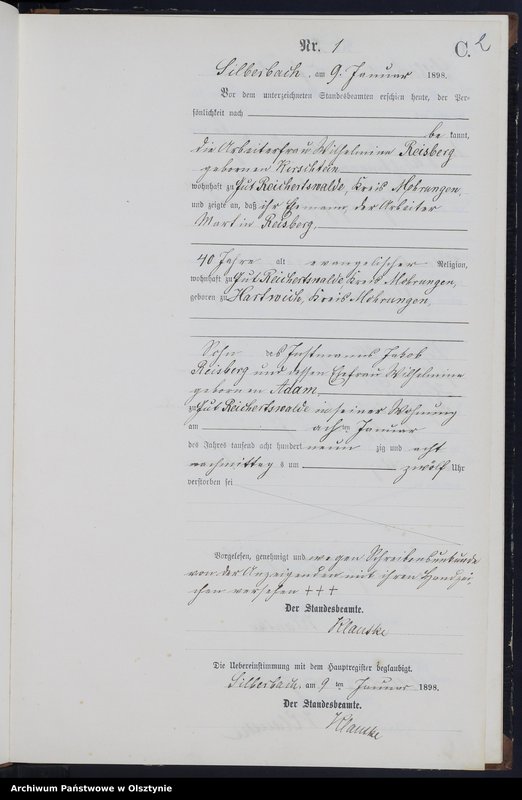 Nr. 1
C. 2
Silberbach, am 9. Januar 1898.
Vor dem unterzeichneten Standesbeamten erschien heute, der Per-
sönlichkeit nach
be kannt,
die Arbeiterfrau Wilhelmine Reisberg
geborenen Kirschstein
wohnhaft zu Gut Reichertswalde, Kreis Mohrungen,
und zeigte an, daß ihr Ehemann, der Arbeiter
Martin Reisberg,
40 Jahre alt evangelischer Religion,
wohnhaft zu Gut Reichertswalde Kreis Mohrungen,
geboren zu Hartwich, Kreis Mohrungen,
Sohn des Instmanns Jakob
Reisberg und dessen Ehefrau Wilhelmine
geborenen Adam
zu Gut Reichertswalde in seiner Wohnung
am achten Januar
des Jahres tausend acht hundert neun zig und acht
nachmittag s um zwölf Uhr
verstorben sei
Vorgelesen, genehmigt und wegen Schreibensunkunde
von der Anzeigenden mit ihren Handzei-
chen versehen +++
Der Standesbeamte.
Klautke
Die Uebereinstimmung mit dem Hauptregister beglaubigt.
Silberbach, am 9 ten Januar 1898.
Der Standesbeamte.
Klautke
Archiwum Państwowe w Olsztynie